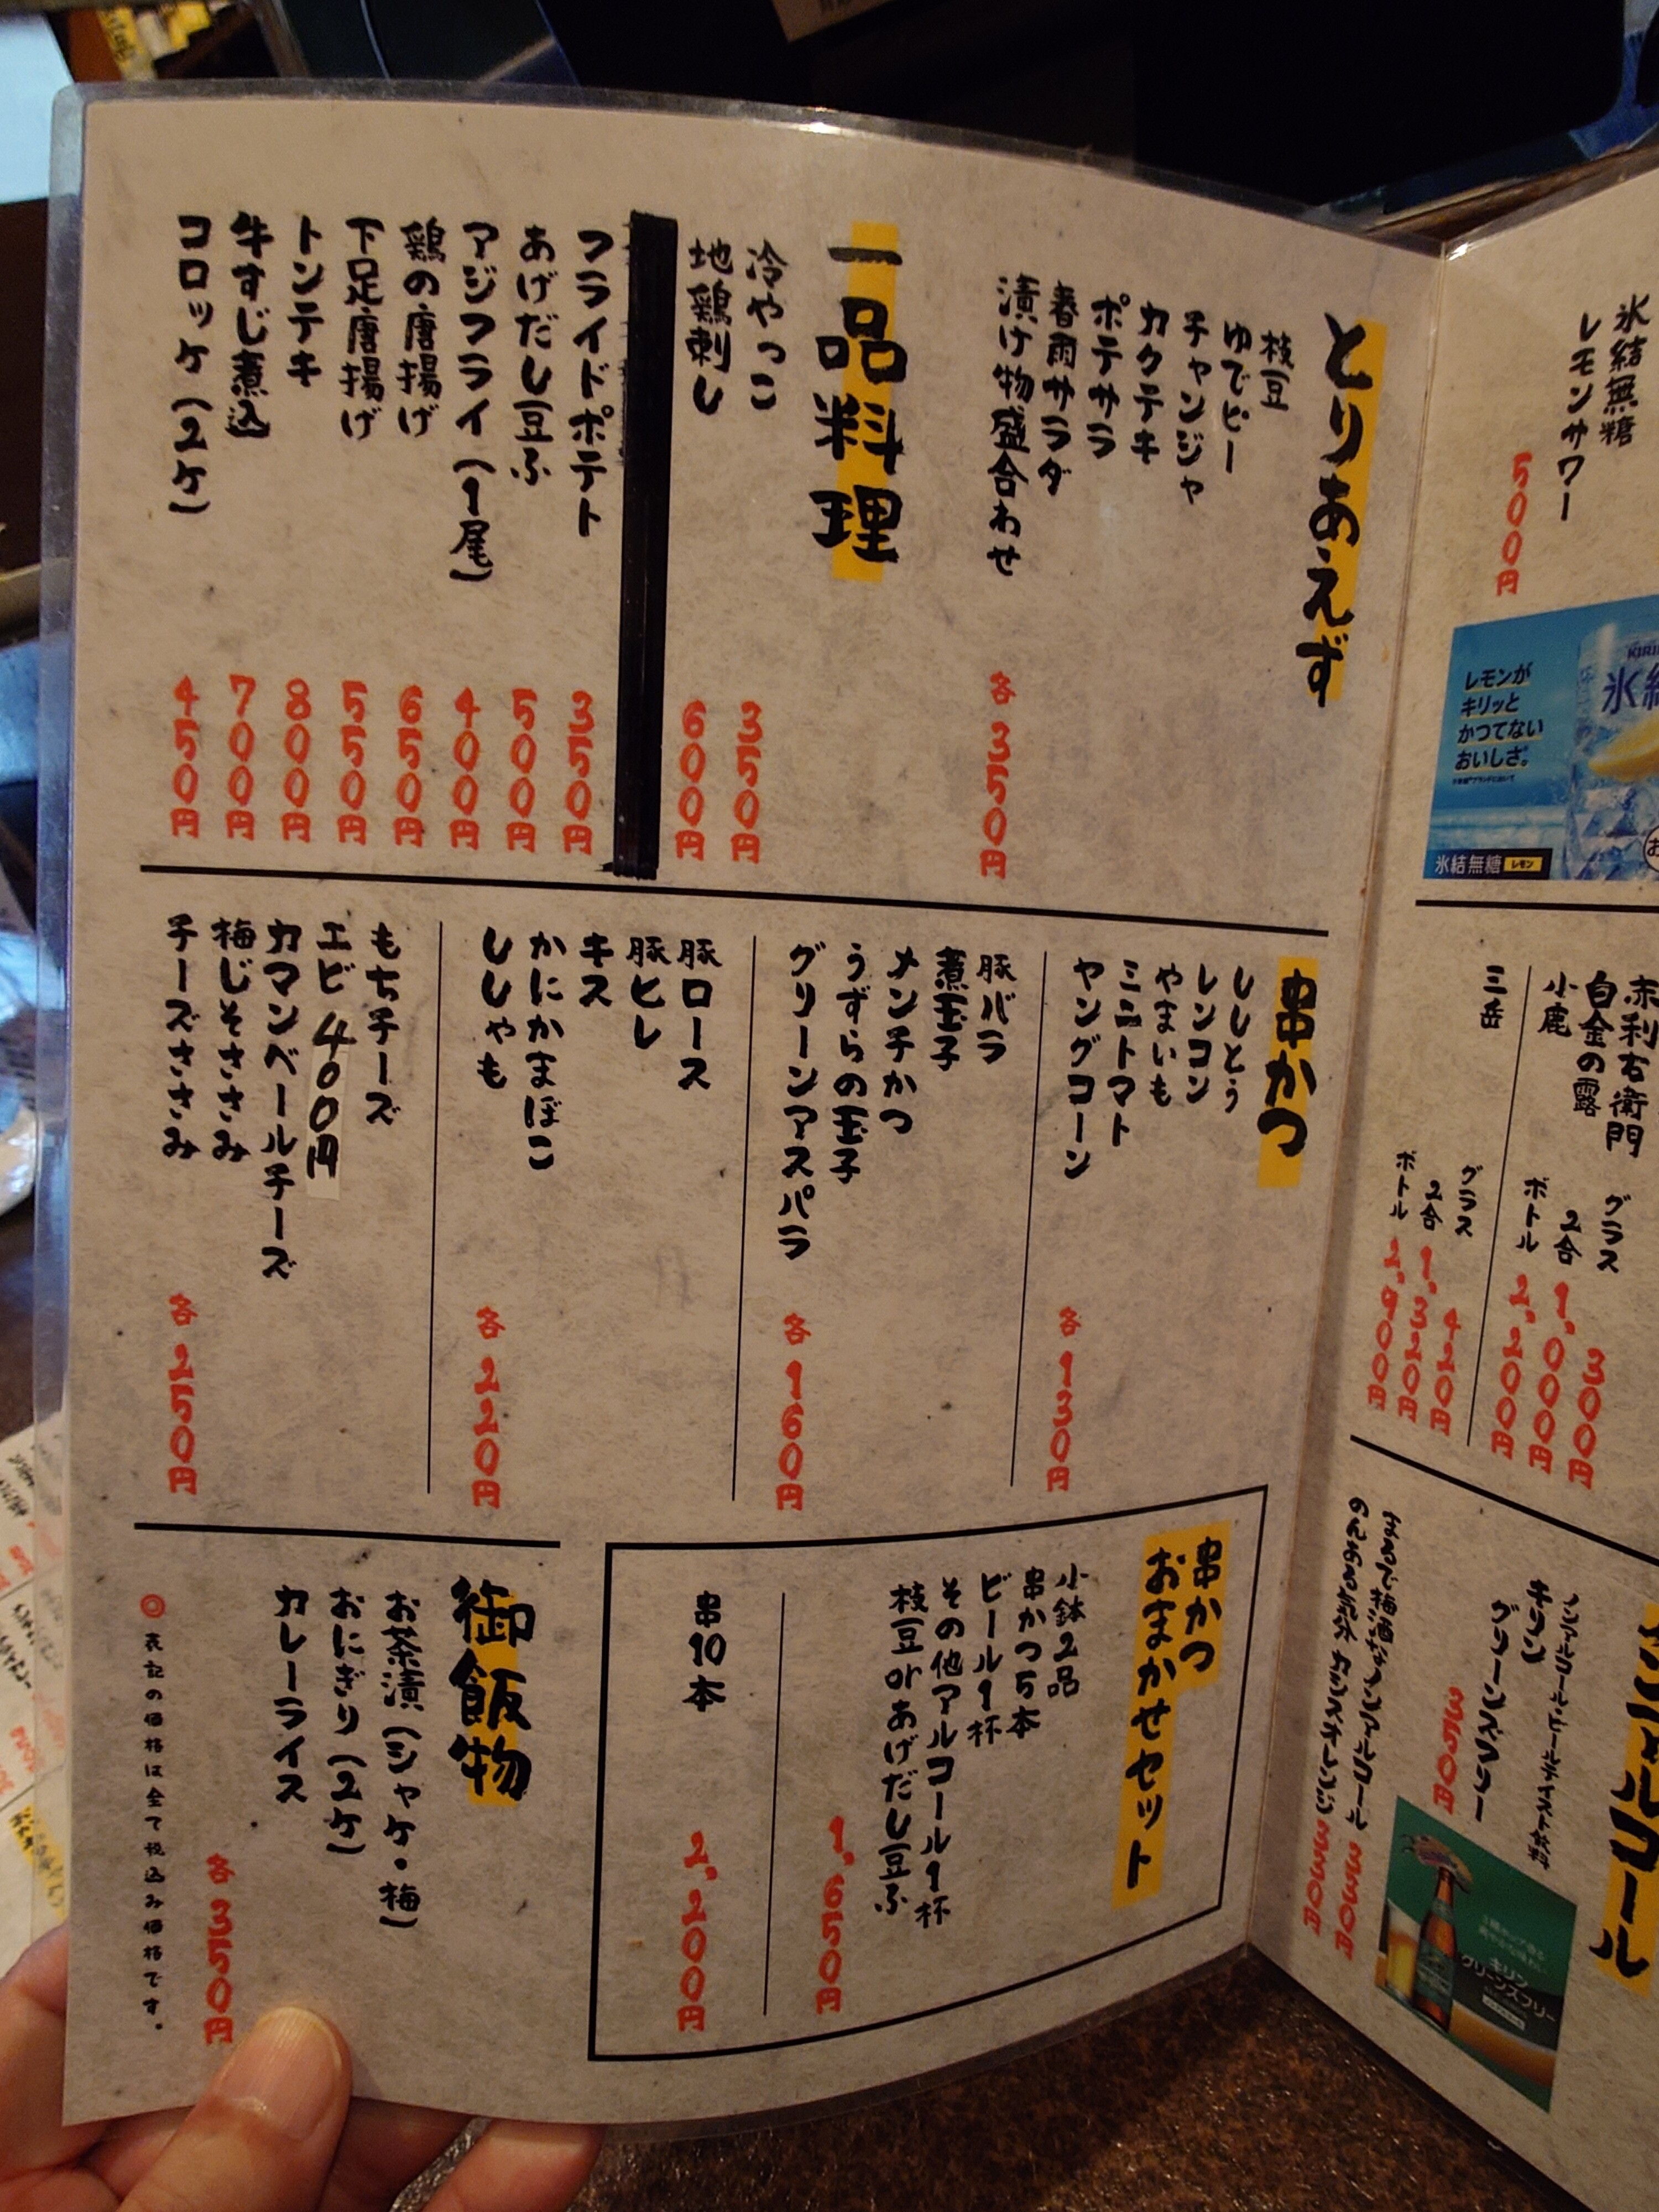 氷結無糖
レモンサワー
500円
レモンが
キリッと
かつてない
おいしさ。
氷結無糖 レモン
赤利右衛門
白金の露
小鹿
グラス 300円
2合 1,000円
ボトル 2,200円
三岳
グラス 420円
2合 1,320円
ボトル 2,900円
ノンアルコール・ビールテイスト飲料
キリン
グリーンズフリー
350円
まるで梅酒なノンアルコール 330円
のんある気分 カシスオレンジ 330円
キリン
グリーンズフリー
とりあえず
枝豆
ゆでピー
チャンジャ
カクテキ
ポテサラ
春雨サラダ
漬け物盛合わせ
各350円
一品料理
冷やっこ 350円
地鶏刺し 600円
フライドポテト 350円
あげだし豆ふ 500円
アジフライ(1尾) 400円
鶏の唐揚げ 650円
下足唐揚げ 550円
トンテキ 800円
牛すじ煮込 700円
コロッケ(2ケ) 450円
串かつ
ししとう
レンコン
やまいも
ミニトマト
ヤングコーン
各130円
豚バラ
煮玉子
メンチかつ
うずらの玉子
グリーンアスパラ
各160円
豚ロース
豚ヒレ
キス
かにかまぼこ
ししゃも
各220円
もち チーズ
エビ 400円
カマンベールチーズ
梅じそささみ
チーズささみ
各250円
串かつ
おまかせセット
小鉢2品
串かつ5本
ビール1杯
その他アルコール1杯
枝豆orあげだし豆ふ
1,650円
串10本
2,200円
御飯物
お茶漬(シャケ・梅)
おにぎり(2ケ)
カレーライス
各350円
◎表記の価格は全て税込み価格です。